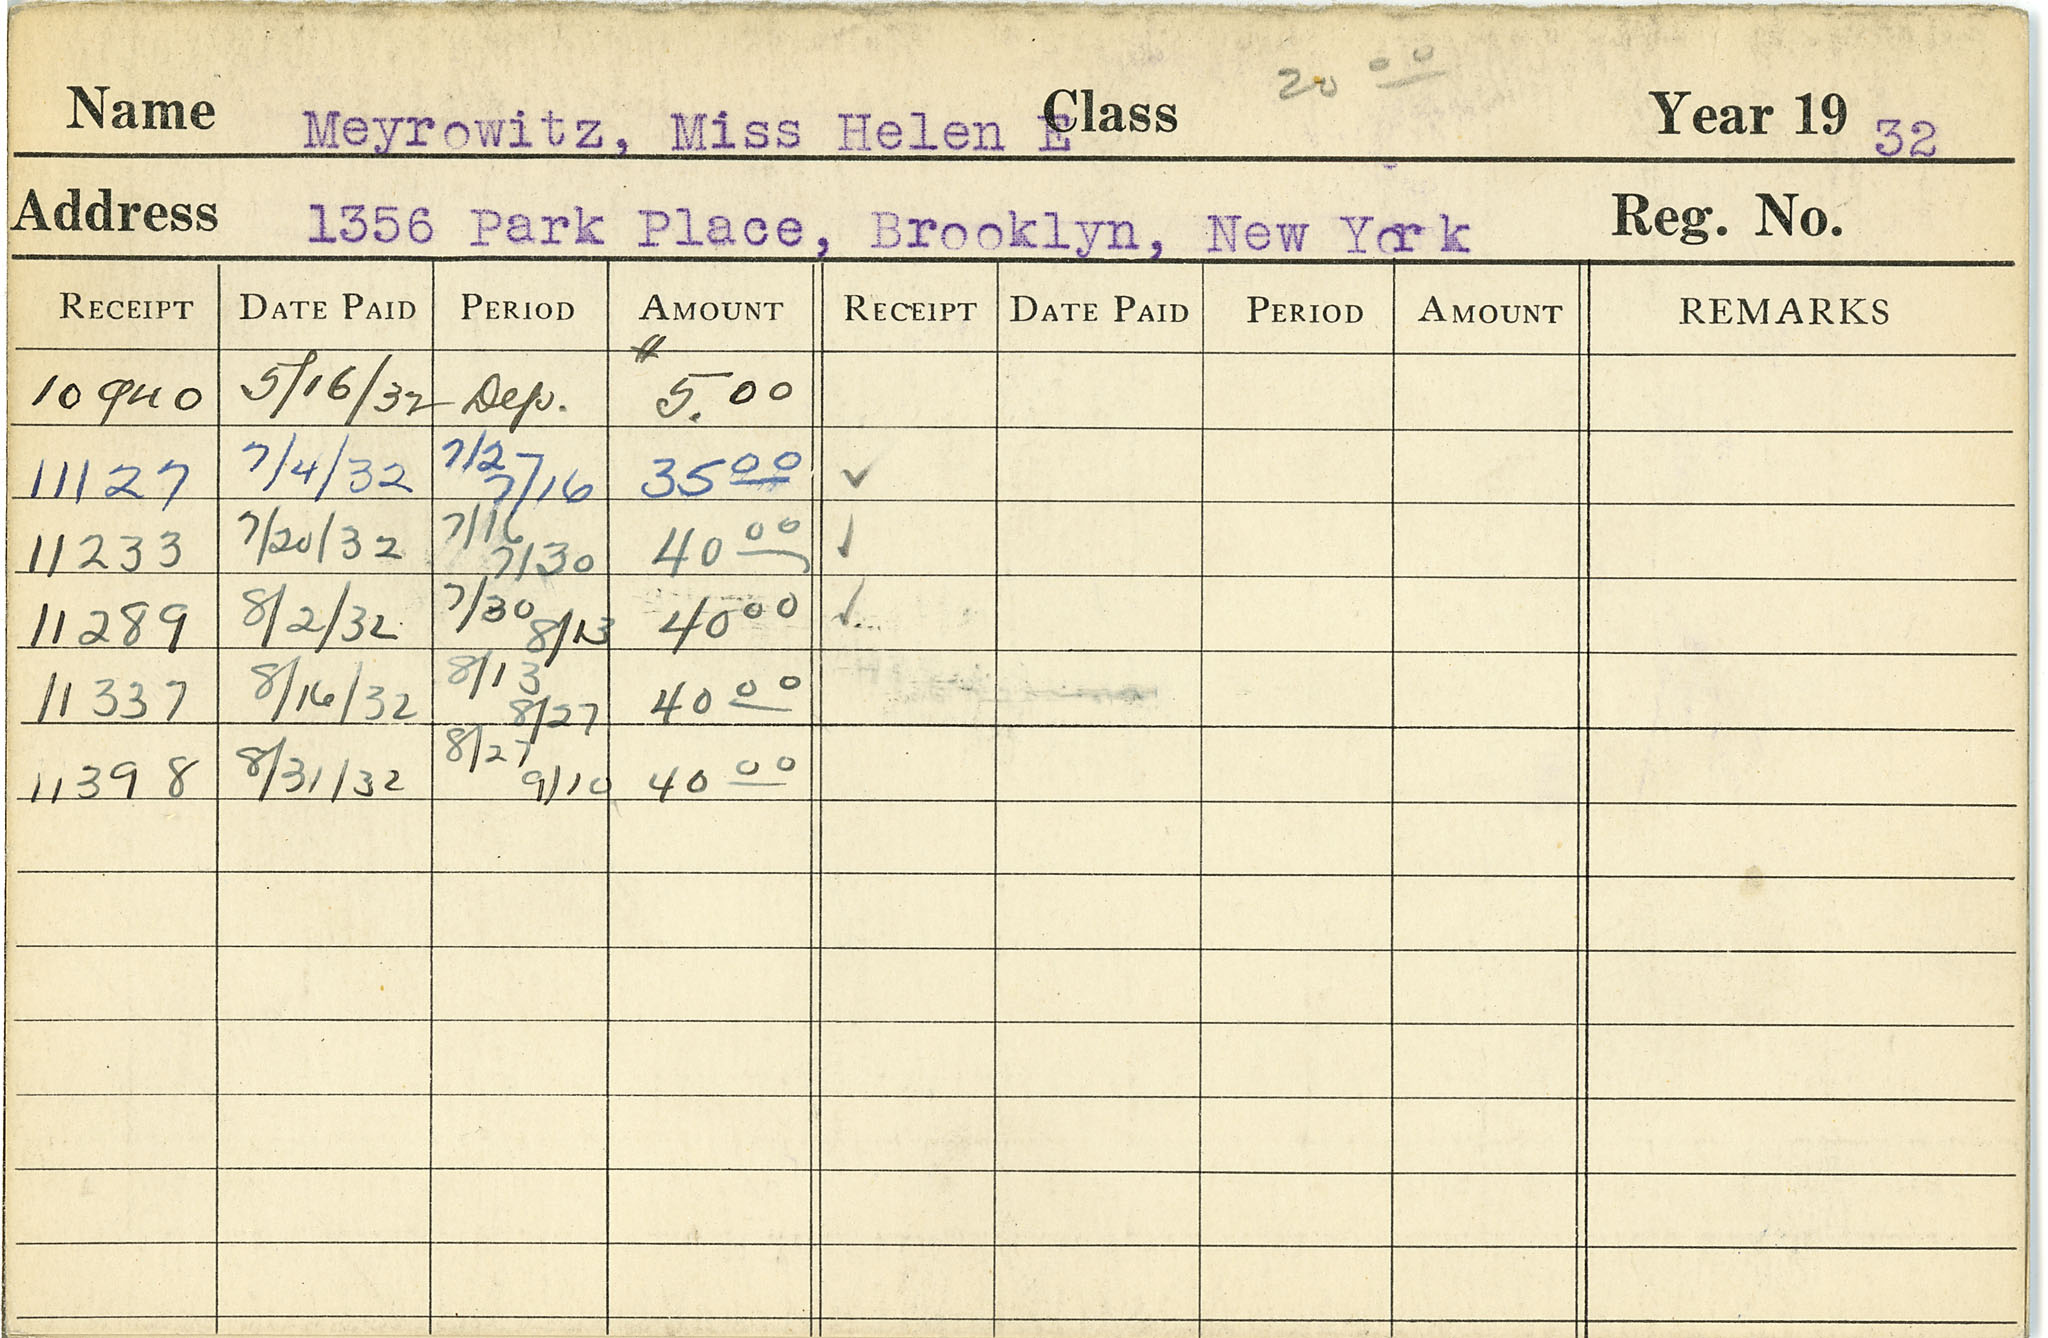 20 00
Name Meyrowitz, Miss Helen E Class Year 19 32
Address 1356 Park Place, Brooklyn, New York Reg. No.
RECEIPT DATE PAID PERIOD AMOUNT RECEIPT DATE PAID PERIOD AMOUNT REMARKS
10940 5/16/32 Dep. $ 5.00
11127 7/4/32 7/2 7/16 35 00 ✓
11233 7/20/32 7/16 7/30 40 00 ✓
11289 8/2/32 7/30 8/13 40 00 ✓
11337 8/16/32 8/13 8/27 40 00
11398 8/31/32 8/27 9/10 40 00